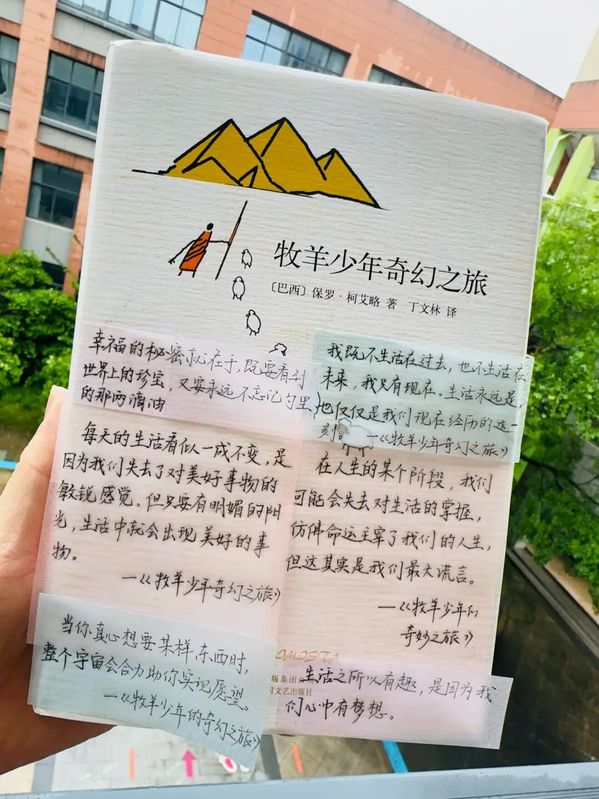 牧羊少年奇幻之旅
〔巴西〕保罗·柯艾略 著 丁文林 译
幸福的秘密就在于,既要看到
世界上的珍宝,又要永远不忘记勺里
的那两滴油
我既不生活在过去,也不生活在
未来,我只有现在。生活永远是,
也仅仅是我们现在经历的这一
刻。—《牧羊少年奇幻之旅》
每天的生活看似一成不变,是
因为我们失去了对美好事物的
敏锐感觉。但只要有明媚的阳
光,生活中就会出现美好的事
物。
—《牧羊少年奇幻之旅》
在人生的某个阶段,我们
可能会失去对生活的掌握,
仿佛命运主宰了我们的人生,
但这其实是我们最大谎言。
—《牧羊少年的
奇妙之旅》
当你真心想要某样东西时,
整个宇宙会合力助你实现愿望。
—《牧羊少年的奇幻之旅》
版集团
文艺出版社
生活之所以有趣,是因为我
们心中有梦想。